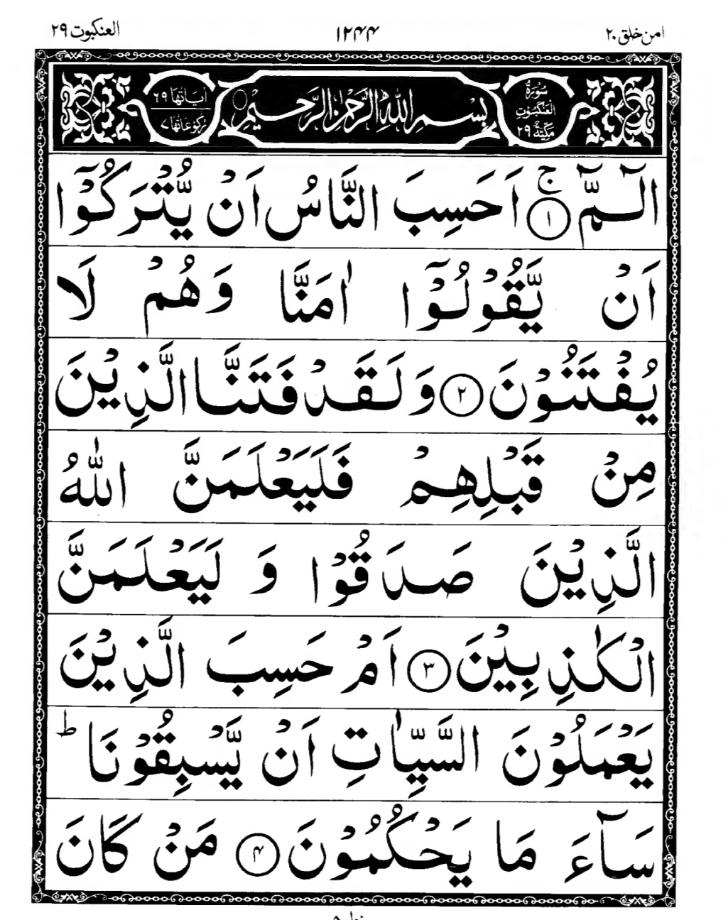 امن خلق ٢٠ ١٢۴۴ العنکبوت ٢٩
سُوْرَةُ الْعَنْكَبُوْتِ مَكِّيَّةٌ ٢٩ بِسْمِ اللّٰهِ الرَّحْمٰنِ الرَّحِيْمِ اٰيَاتُهَا ٦٩ رُكُوْعَاتُهَا ٧
الٓمّٓ ۚ ﴿١﴾ اَحَسِبَ النَّاسُ اَنْ يُّتْرَكُوْٓا
اَنْ يَّقُوْلُوْٓا اٰمَنَّا وَهُمْ لَا
يُفْتَنُوْنَ ﴿٢﴾ وَلَقَدْ فَتَنَّا الَّذِيْنَ
مِنْ قَبْلِهِمْ فَلَيَعْلَمَنَّ اللّٰهُ
الَّذِيْنَ صَدَقُوْا وَ لَيَعْلَمَنَّ
الْكٰذِبِيْنَ ﴿٣﴾ اَمْ حَسِبَ الَّذِيْنَ
يَعْمَلُوْنَ السَّيِّاٰتِ اَنْ يَّسْبِقُوْنَا ؕ
سَآءَ مَا يَحْكُمُوْنَ ﴿۴﴾ مَنْ كَانَ